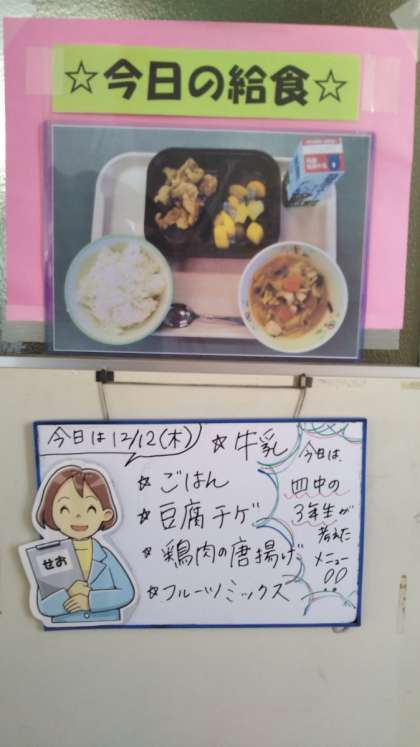 ☆今日の給食☆
今日は12/12(木)
☆牛乳
☆ごはん
☆豆腐チゲ
☆鶏肉の唐揚げ
☆フルーツミックス
今日は、
四中の
3年生が
考えた
メニュー
!!
せお